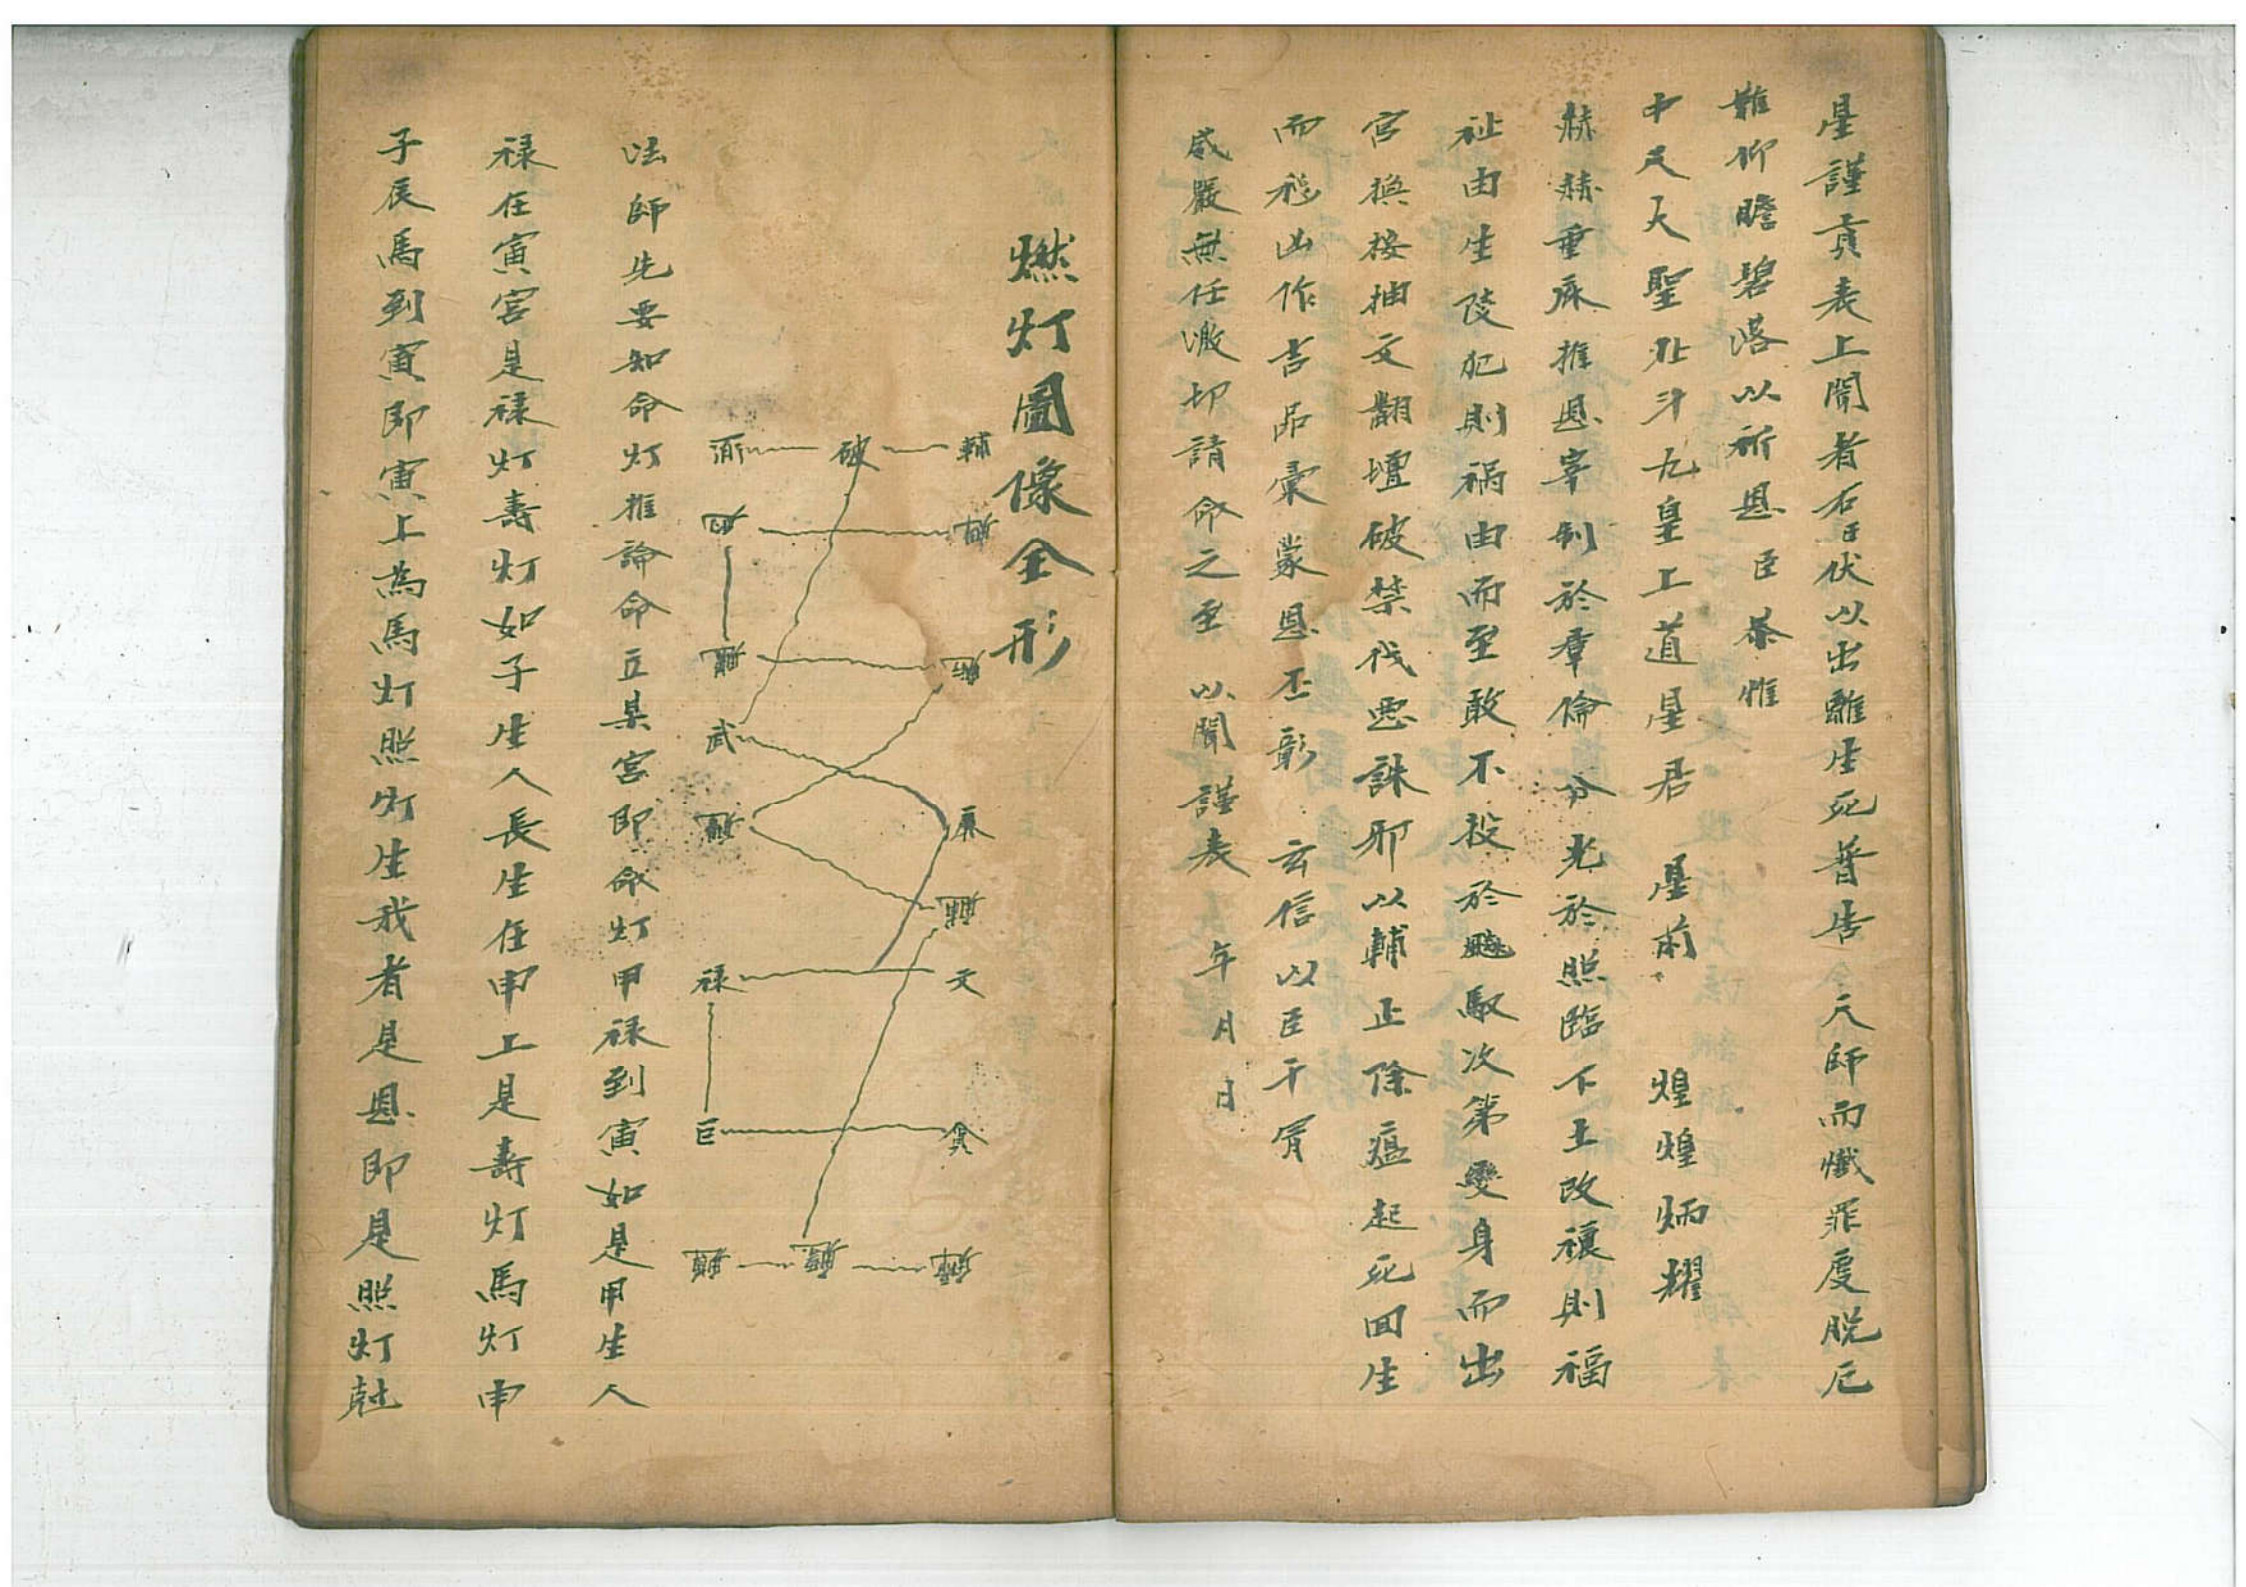 星謹賫表上聞者右臣伏以出離生死普告天師而懺罪度脫厄
難仰瞻碧落以祈恩臣恭惟
中天大聖北斗九皇上道星君 星前 煌煌炳耀
赫赫垂庥推恩宰制於羣倫分光於照臨下土改禳則福
祉由生陵犯則禍由而至敢不投於馭次第變身而出
宮換按抽文翻壇破禁伐惡誅邪以輔正除瘟起死回生
而移凶作吉品彙蒙恩丕彰 玄信以臣干冐
威嚴無任激切請命之至以聞謹表 年 月 日
燃灯圖像全形
輔 破 弼
武
廉
文 祿
貪 巨
法師先要知命灯推論命立某宮即命灯甲祿到寅如是甲生人
祿在寅宮是祿灯壽灯如子生人長生在申上是壽灯馬灯申
子辰馬到寅即寅上為馬灯照灯生我者是恩即是照灯尅